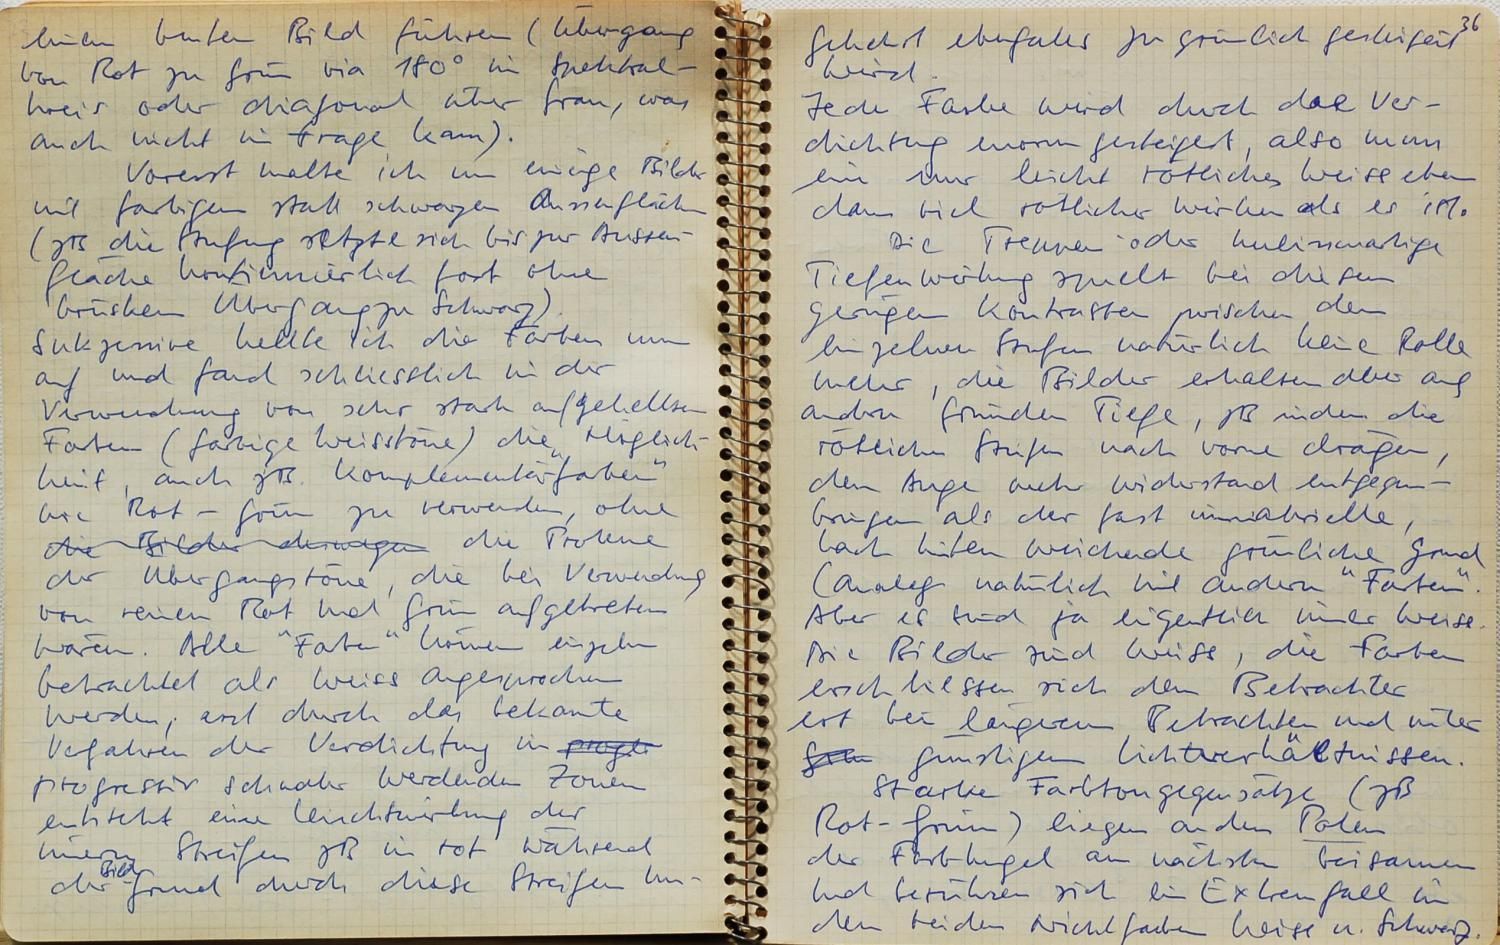 einem bunten Bild führen (Übergang
von Rot zu Grün via 180° im Spektral-
kreis oder diagonal über Grau, was
auch nicht in Frage kam).
Vorerst malte ich nun einige Bilder
mit farbigen statt schwarzen Aussenflächen
(zB die Stufung setzte sich bis zur Aussen-
fläche kontinuierlich fort ohne
brüsken Übergang zu Schwarz).
Sukzessive hellte ich die Farben nun
auf und fand schliesslich in der
Verwendung von sehr stark aufgehellten
Farben (farbige Weisstöne) die Möglich-
keit, auch zB. "Komplementärfarben"
wie Rot – Grün zu verwenden, ohne
die Bilder deswegen die Probleme
der Übergangstöne, die bei Verwendung
von reinem Rot und Grün aufgetreten
wären. Alle "Farben" können einzeln
betrachtet als Weiss angesprochen
werden, erst durch das bekannte
Verfahren der Verdichtung in progr
progressiv schmaler werdenden Zonen
entsteht eine Leuchtwirkung der
innern Streifen zB in rot während
der Bildgrund durch diese Streifen um-
36
gekehrt ebenfalls zu grünlich gesteigert
wird.
Jede Farbe wird durch die Ver-
dichtung enorm gesteigert, also muss
ein nur leicht rötliches Weiss eben
dann viel rötlicher wirken als es ist.
Die Treppen- oder kulissenartige
Tiefenwirkung spielt bei diesen
geringen Kontrasten zwischen den
einzelnen Stufen natürlich keine Rolle
mehr, die Bilder erhalten aber aus
andern Gründen Tiefe, zB indem die
rötlichen Streifen nach vorne drängen,
dem Auge mehr Widerstand entgegen-
bringen als der fast immaterielle,
nach hinten weichende grünliche Grund
(analog natürlich mit andern "Farben".
Aber es sind ja eigentlich immer Weiss.
Die Bilder sind weiss, die Farben
erschliessen sich dem Betrachter
erst bei längerem Betrachten und unter
günstigen Lichtverhältnissen.
Starke Farbtongegensätze (zB
Rot-Grün) liegen an den Polen
der Farbkugel am nächsten beisammen
und berühren sich im Extremfall in
den beiden Nichtfarben Weiss u. Schwarz.